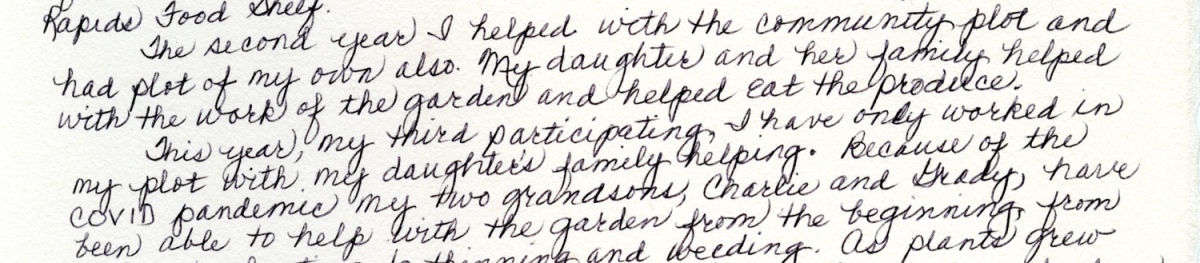 Rapids Food Shelf.
The second year I helped with the community plot and
had plot of my own also. My daughter and her family helped
with the work of the garden and helped eat the produce.
This year, my third participating, I have only worked in
my plot with my daughter's family helping. Because of the
COVID pandemic my two grandsons, Charlie and Grady, have
been able to help with the garden from the beginning, from
thinning and weeding. As plants grew